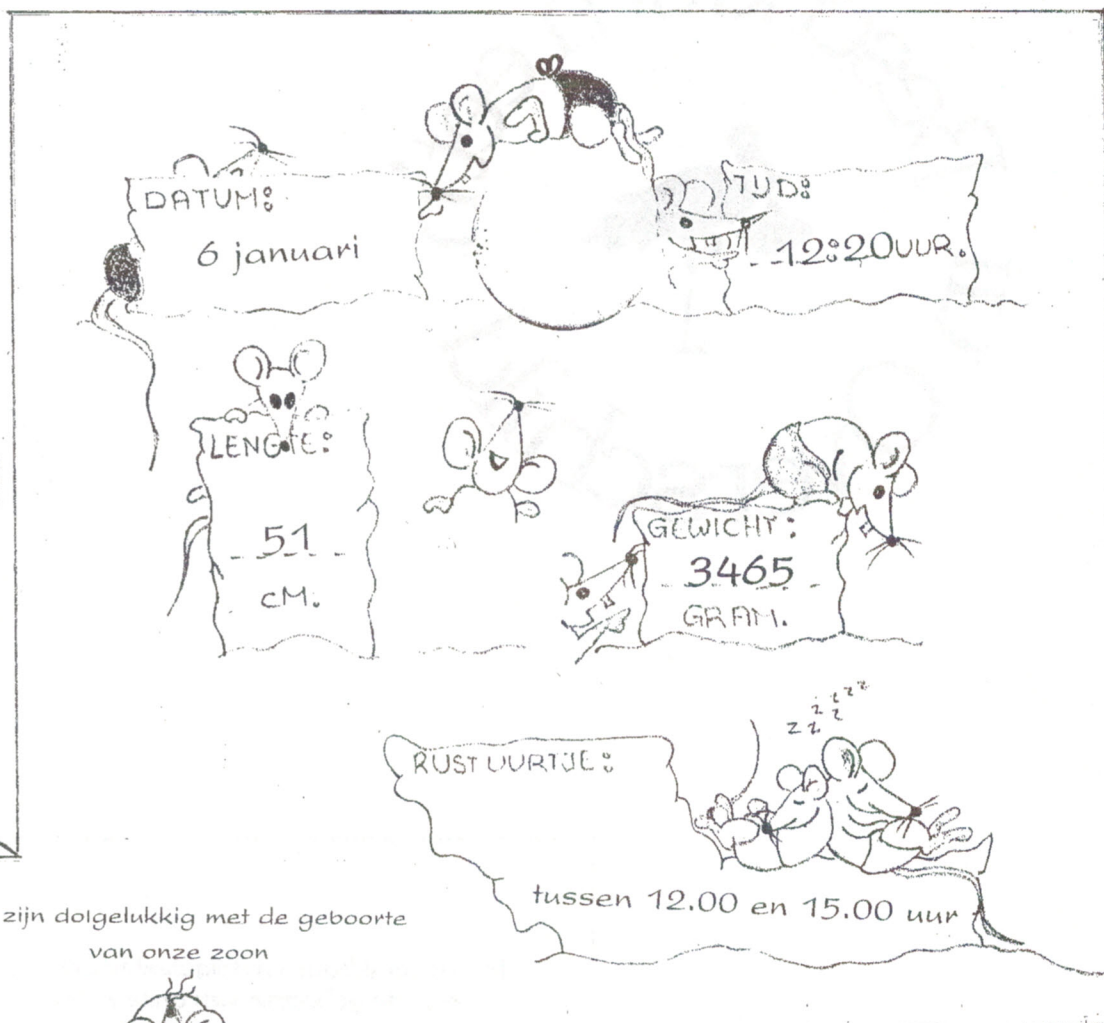 DATUM:
6 januari
TIJD:
12:20 UUR.
LENGTE:
51
cM.
GEWICHT:
3465
GRAM.
z z z z z z z
RUSTUURTJE:
tussen 12.00 en 15.00 uur
zijn dolgelukkig met de geboorte
van onze zoon